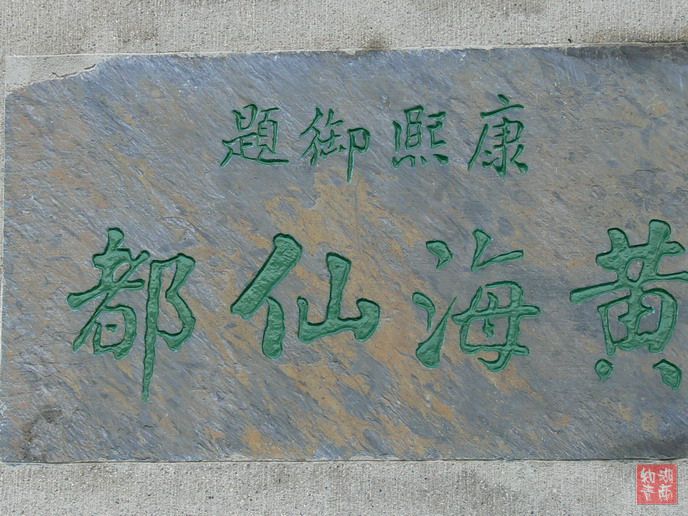 康熙御題
黃海仙都